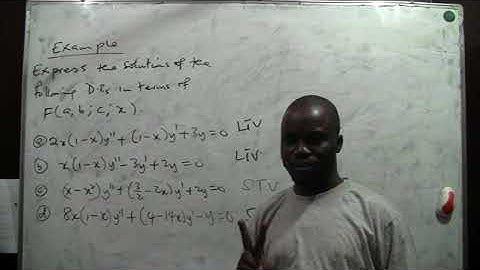 Example
Express the solutions of the
following D.Es in terms of
F(a, b; c; x).
(a) 2x(1-x)y" + (1-x)y' + 3y = 0 LIV
(b) x(1-x)y" - 3y' + 2y = 0 LIV
(c) (x-x²)y" + (3/2 - 2x)y' + 2y = 0 STV
(d) 8x(1-x)y" + (4-14x)y' - y = 0 S